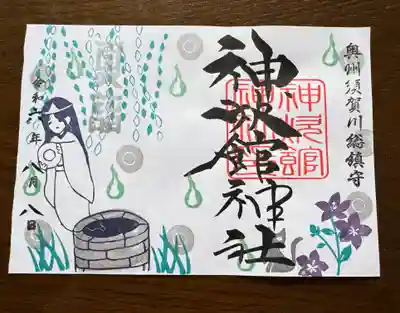 奥州須賀川総鎮守
神炊館神社
神炊館神社
奉拝
令和六年八月八日